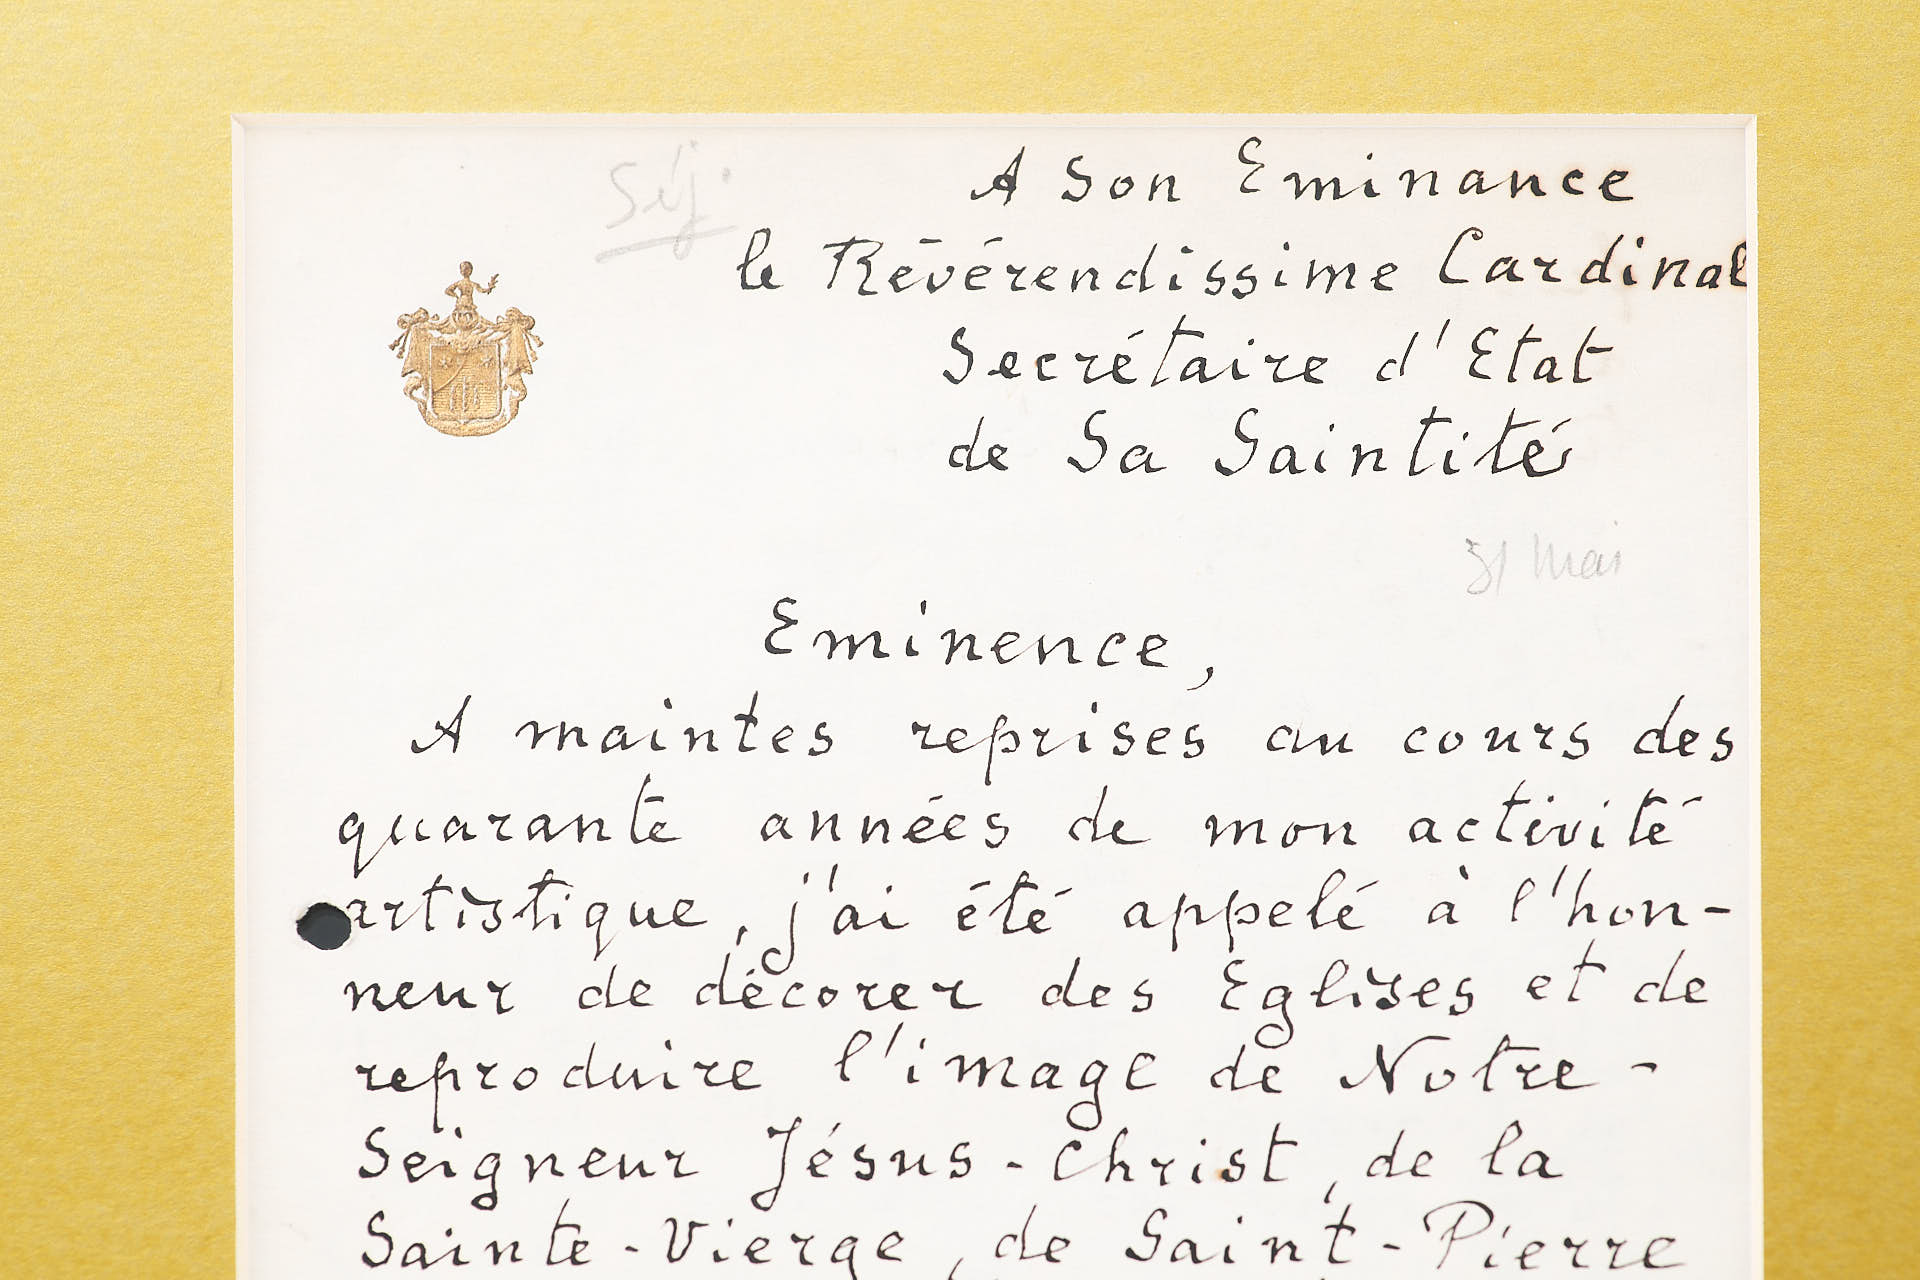 Séj.
A Son Eminance
le Révérendissime Cardinal
Secrétaire d'Etat
de Sa Saintité
31 Mai
Eminence,
A maintes reprises au cours des
quarante années de mon activité
artistique, j'ai été appelé à l'hon-
neur de décorer des Eglises et de
reproduire l'image de Notre-
Seigneur Jésus-Christ, de la
Sainte-Vierge, de Saint-Pierre